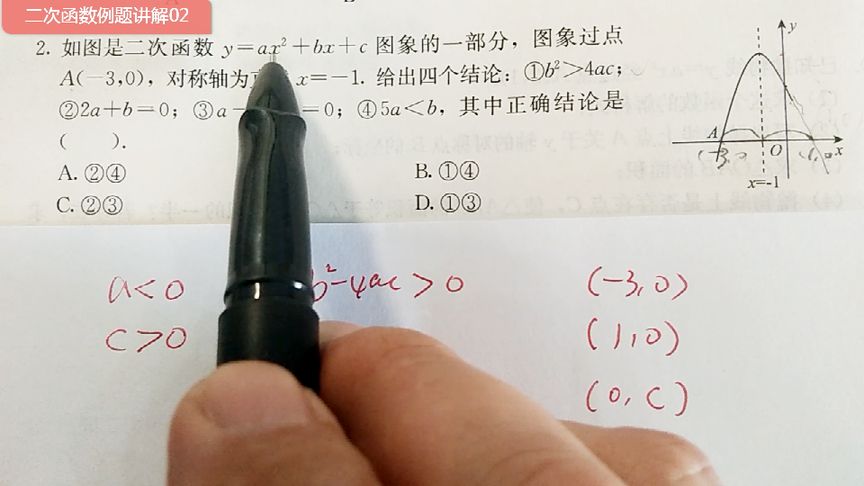 二次函数例题讲解02
2. 如图是二次函数 y=ax²+bx+c 图象的一部分，图象过点
A(-3,0)，对称轴为 x=-1. 给出四个结论：①b²>4ac；
②2a+b=0；③a =0；④5a<b，其中正确结论是
( ).
A. ②④
B. ①④
C. ②③
D. ①③
y
A
O
x
(-3,0
(1,0
x=-1
a<0
b²-4ac>0
(-3,0)
c>0
(1,0)
(0,c)